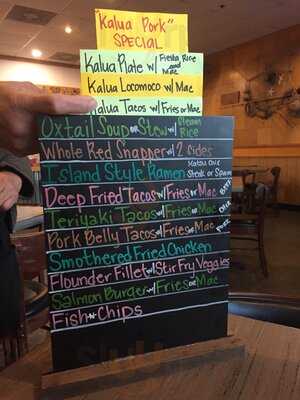 "Kalua Pork"
SPECIAL
Kalua Plate w/ Fiesta Rice and Mac
Kalua Locomoco w/ Mac
Kalua Tacos w/ Fries or Mac
Oxtail Soup or Stew w/ Steam Rice
Whole Red Snapper w/ 2 Sides
Island Style Ramen Katsu Chic Steak or Spam
Deep Fried Tacos w/ Fries or Mac BEEF
Teriyaki Tacos w/ Fries or Mac CHIC
Pork Belly Tacos w/ Fries or Mac PORK
Smothered Fried Chicken
Flounder Fillet w/ Stir Fry Veggies
Salmon Burger w/ Fries or Mac
Fish N Chips